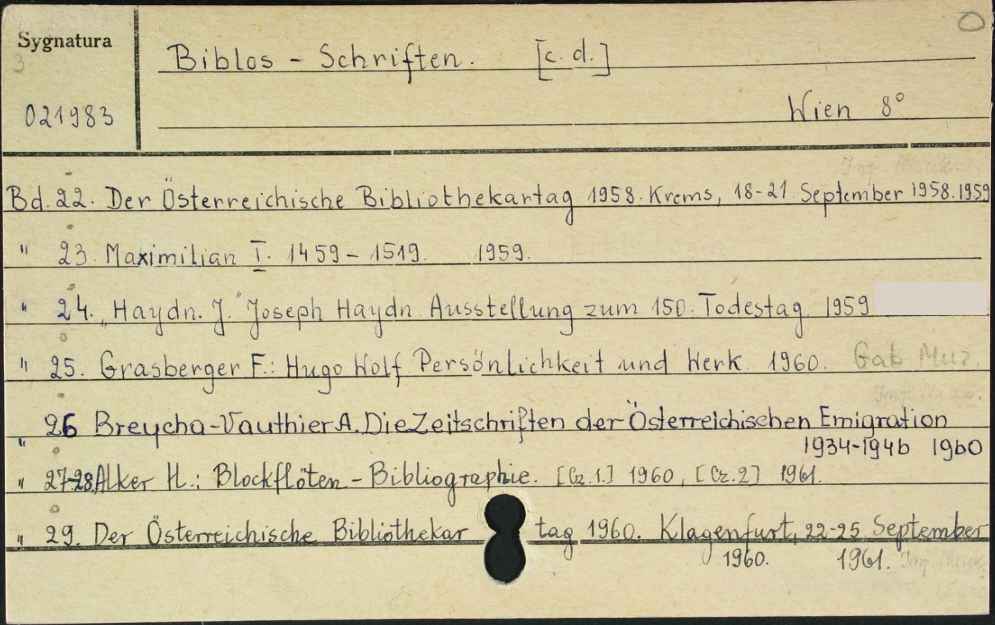 Sygnatura
Biblos - Schriften. [c. d.]
021983
Wien 8°
Bd. 22. Der Österreichische Bibliothekartag 1958. Krems, 18-21 September 1958. 1959
" 23. Maximilian I. 1459 - 1519. 1959.
" 24. „Haydn. J." Joseph Haydn Ausstellung zum 150. Todestag 1959
" 25. Grasberger F.: Hugo Wolf Persönlichkeit und Werk 1960. Gab Muz.
" 26 Breycha-Vauthier A. Die Zeitschriften der Österreichischen Emigration
1934-1946 1960
" 27-28 Alker H.: Blockflöten - Bibliographie. [Cz. 1.] 1960, [Cz. 2] 1961.
" 29. Der Österreichische Bibliothekar tag 1960. Klagenfurt, 22-25 September
1960. 1961.